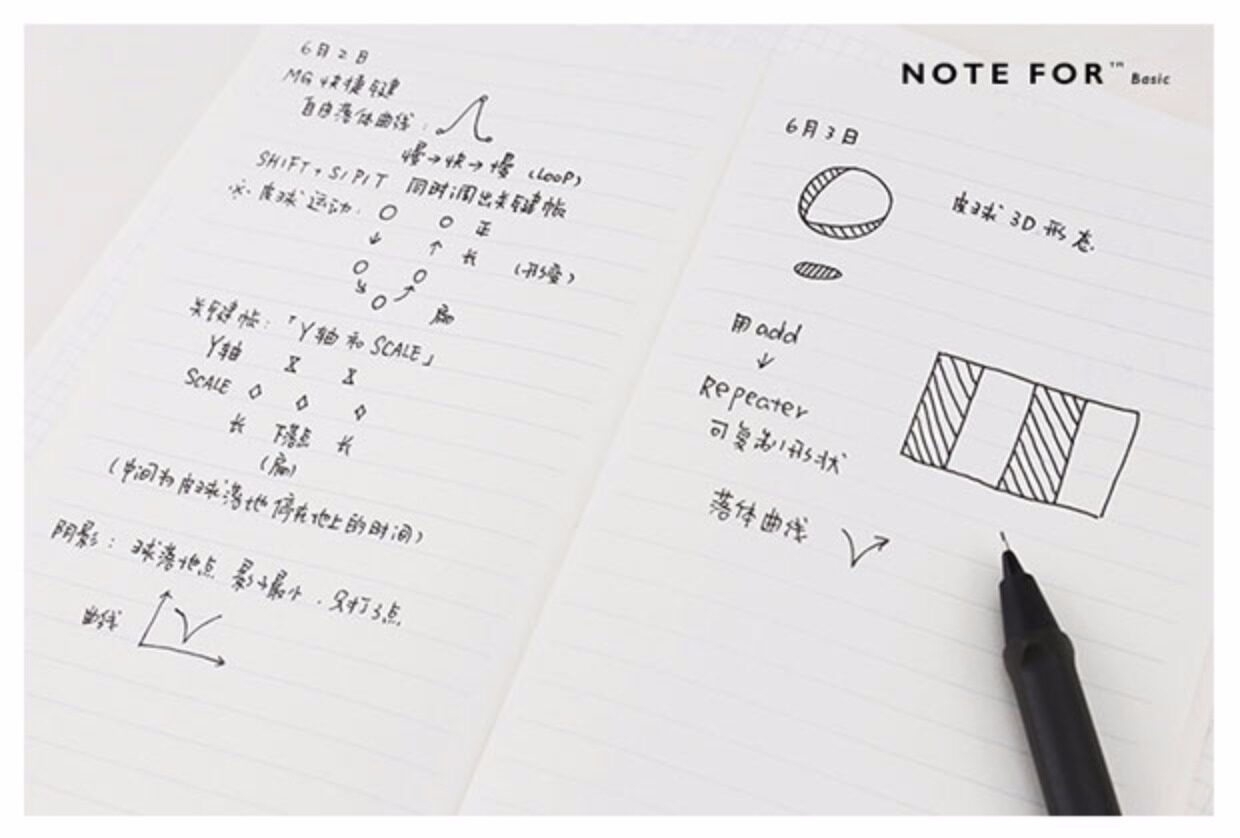 NOTE FOR™ Basic
6月2日
MG 快捷键
自由落体曲线：
慢→快→慢（LOOP）
SHIFT + S/P/T 同时调出关键帧
※ 皮球运动：
正
长 （形变）
扁
关键帧：「Y轴和SCALE」
Y轴
SCALE
长 下落点 长
（扁）
（中间为皮球落地停在地上的时间）
阴影：球落地点 影子最小，只打3点
曲线
6月3日
皮球3D形态
用add
Repeater
可复制形状
落体曲线